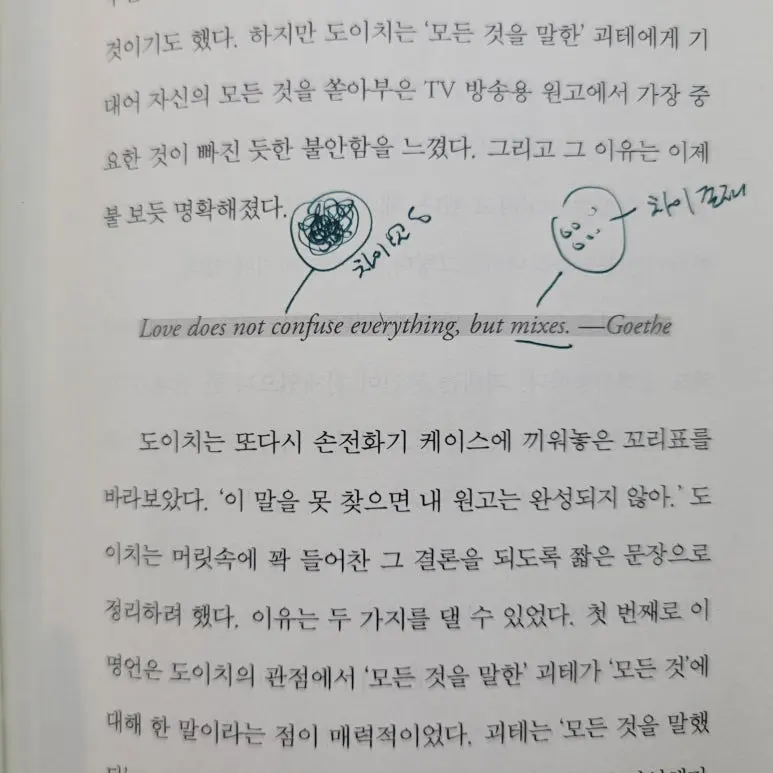 것이기도 했다. 하지만 도이치는 ‘모든 것을 말한’ 괴테에게 기
대어 자신의 모든 것을 쏟아부은 TV 방송용 원고에서 가장 중
요한 것이 빠진 듯한 불안함을 느꼈다. 그리고 그 이유는 이제
불 보듯 명확해졌다.
차이 존재
차이
Love does not confuse everything, but mixes. —Goethe
도이치는 또다시 손전화기 케이스에 끼워놓은 꼬리표를
바라보았다. ‘이 말을 못 찾으면 내 원고는 완성되지 않아.’ 도
이치는 머릿속에 꽉 들어찬 그 결론을 되도록 짧은 문장으로
정리하려 했다. 이유는 두 가지를 댈 수 있었다. 첫 번째로 이
명언은 도이치의 관점에서 ‘모든 것을 말한’ 괴테가 ‘모든 것’에
대해 한 말이라는 점이 매력적이었다. 괴테는 ‘모든 것을 말했